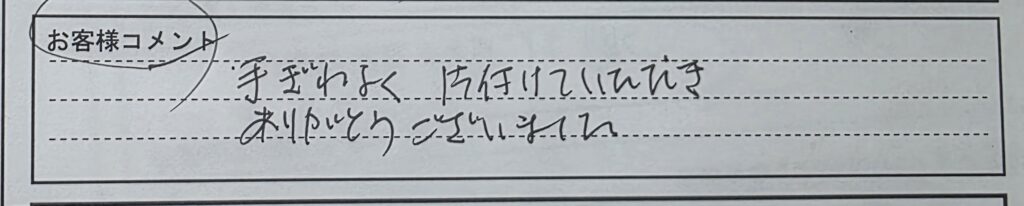 お客様コメント
手ぎわよく 片付けていただき
ありがとうございました